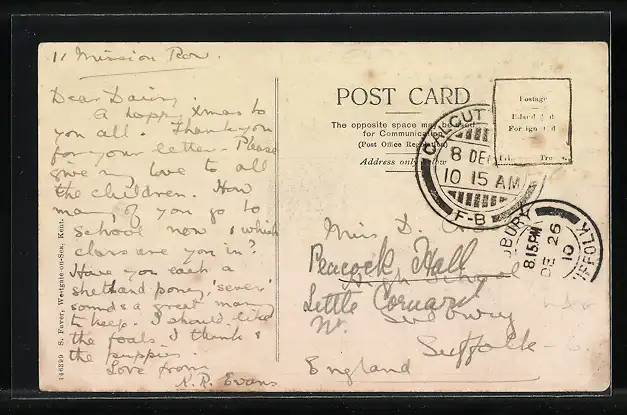 11 Mission Row.
Dear Daisy,
A happy Xmas to
you all. Thank you
for your letter. Please
give my love to all
the children. How
many of you go to
School now & which
class are you in?
Have you each a
shetland pony, 'seven'
sounds a great many
to keep. I should like
the foals I think &
the puppies.
Love from
N. R. Evans
146399 S. Faver, Westgate-on-Sea, Kent.
POST CARD
The opposite space may be used
for Communication
(Post Office Regulation)
Address only below
Postage
Inland
Foreign
CALCUT
8 DE
10 15 AM
F-B
8.15PM
DE 26
10
SUFFOLK
Miss D.
Peacock Hall
School
Little Cornard
Nr. Sudbury
Suffolk
England